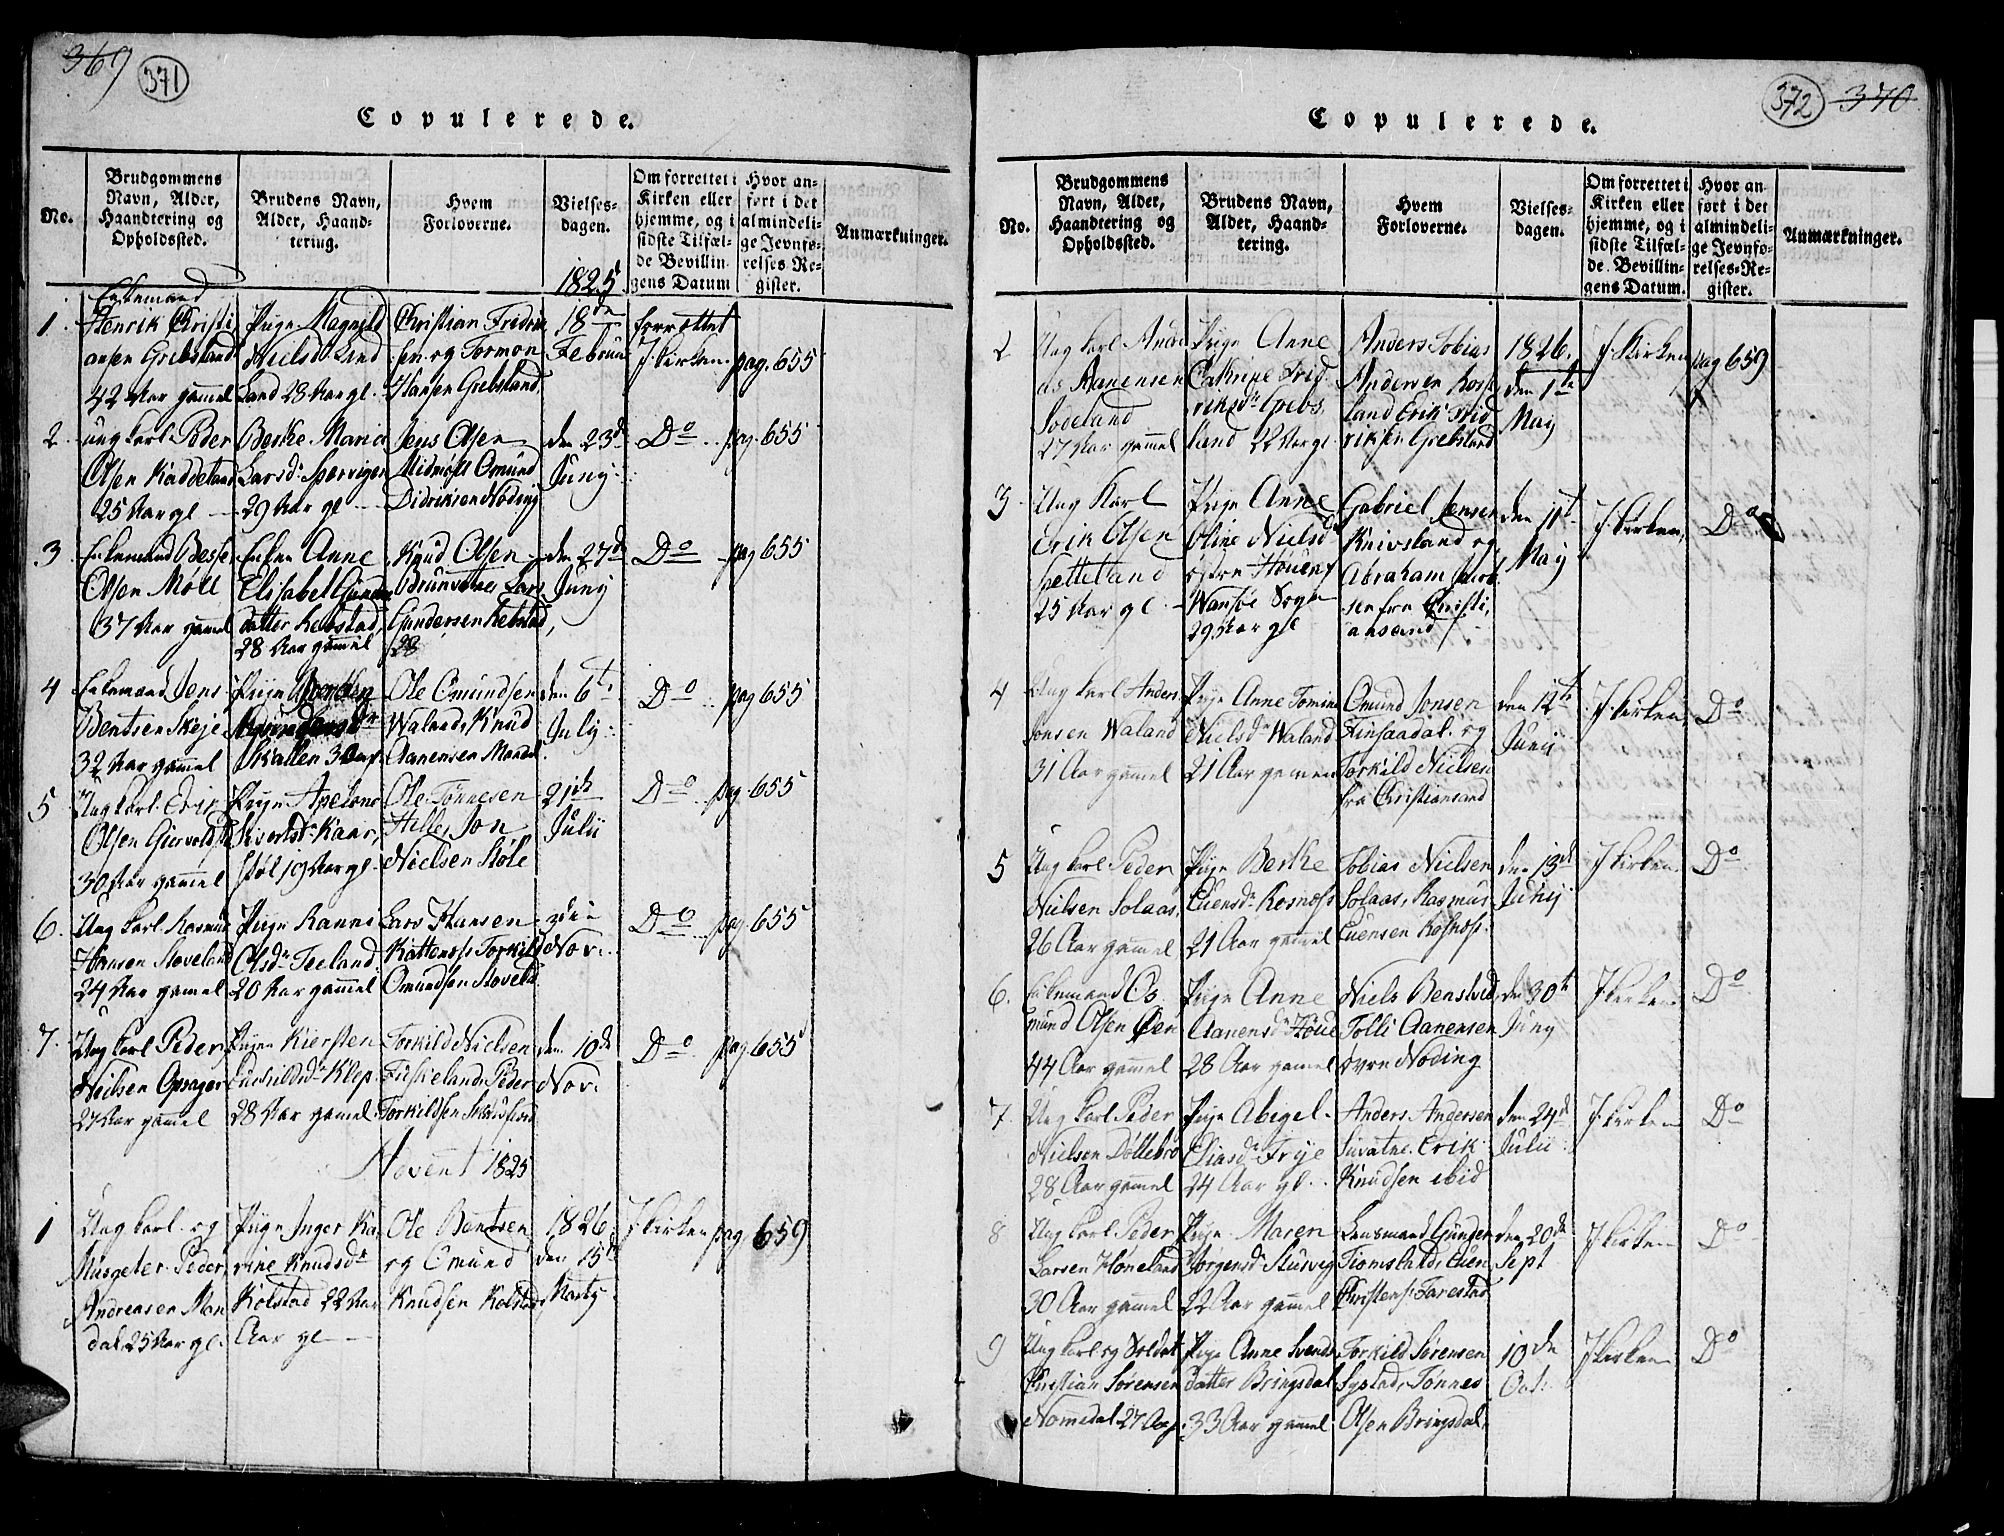 369
371
Copulerede.
No.
Brudgommens
Navn, Alder,
Haandtering og
Opholdssted.
Brudens Navn,
Alder, Haand-
tering.
Hvem
Forloverne.
Vielses-
dagen.
Om forrettet i
Kirken eller
hjemme, og i
sidste Tilfæl-
de Bevillin-
gens Datum
Hvor an-
ført i det
almindeli-
ge Jevnfø-
relses-Re-
gister.
Anmærkninger.
1825
1.
Enkemand
Henrik Christi
ansen Grebsland
42 Aar gammel
Pige Magnild
Nielsd. Lind
Land 28 Aar gl.
Christian Fredrik
sen og Tormon
Hansen Grebsland,
18de
Februar
forrettet
J. Kirken
pag. 655
2.
ung karl Peder
Olsen Kaddeland
25 Aar gl
Berthe Maria
Larsd.
29 Aar gl
Jens Olsen
Omund
Didriksen Nöding
den 23de
Juny
Do
pag. 655
3
Enkemand
Olsen Moll
37 Aar gamel
Enken Anne
Elisabet
datter Kebstad,
28 Aar gammel
Knud Olsen
Lars
Gundersen Kebstad,
28
den 27de
Juny
Do
pag 655
4
Enkemand Jens
Bentsen Skeje
32 Aar gammel
Pige
Ole Omundsen
Waland, Knud
Aanensen Mandal.
den 6te
July
Do
pag 655
5
Ung karl. Erik
Olsen
30 Aar gammel
Pige
19 Aar gl.
Ole Tönnesen
Hille, Jon
Nielsen Støle
21de
Julii
Do
pag. 655
6.
Ung karl. Rasmus
Hansen Stoveland
24 Aar gamel
Pige Ranni
Olsd. Teeland
20 Aar gammel
Lars Hansen
Torkild
Omundsen Stoveld
3die
Nov.
Do
pag. 655
7.
Ung karl Peder
Nielsen Opsager
27 Aar gamel
Pigen Kiersten
Klep
28 Aar gamel
Torkild Nielsen
Peder
Torkildsen
den 10de
Nov.
Do
pag. 655
1825
1
Ung karl og
Musqeter Peder
Andreasen Man
dal 25 Aar gl.
Pige Inger Ka
rine Knudsdr
Kolstad 22 Aar
Aar gl
Ole Bentsen
og Omund
Knudsen Kolstad,
1826
den 15de
Marty
J. Kirken
pag. 659
372
370
Copulerede.
No.
Brudgommens
Navn, Alder,
Haandtering og
Opholdssted.
Brudens Navn,
Alder, Haand-
tering.
Hvem
Forloverne.
Vielses-
dagen.
Om forrettet i
Kirken eller
hjemme, og i
sidste Tilfæl-
de Bevillin-
gens Datum.
Hvor an-
ført i det
almindeli-
ge Jevnfø-
relses-Re-
gister.
Anmærkninger.
2
Ung karl Andre
as Aanensen
Sodeland
27 Aar gammel
Pige Anne
Catrine Frid
riksdr Grebs
land 22 Aar gl.
Anders Tobias
Andersen
land Erik Frid
riksen Grebsland
1826.
den 1te
May
J. Kirken
pag 659
3
Ung Karl
Erik Olsen
25 Aar gl.
Pige Anne
Oline Nielsdr
29 Aar gl
Gabriel Jensen
Knivsland og
Abraham Jacob
sen fra Christi,
ansand
den 11te
May
J. Kirken,
Do
4
Ung karl Anders
Jonsen Waland
31 Aar gamel
Pige Anne Tomine
Nielsdr Waland
21 Aar gamen
Omund Jonsen
Finsaadal. og
Torkild Nielsen
fra Christiansand
den 12te
Junii
J. Kirken
Do
5
Ung karl Peder
Nielsen Solaas,
26 Aar gammel
Pige Berthe
Euensdr Rosnoss
21 Aar gammel
Tobias Nielsen
Solaas, Rasmus
Euensen Rosnoss.
den 13de
J. Kirken.
Do
6.
Enkemand Os
mund Olsen Øen
44 Aar gammel
Pige Anne
Aanensdr Höüe
28 Aar gammel
Niels
Tolli Aanensen
övre Nöding
den 30te
Juny
J. Kirken
Do
7.
Ung karl Peder
Nielsen Döllebro
28 Aar gammel
Pige Abigel.
Eliasdr Frije
24 Aar gl.
Anders Andersen
Suvatne. Erik
Knudsen ibid
den 24de
Julii
J. Kirken
Do
8
Ung karl Peder
Larsen Höneland
30 Aar gammel
Pige Maren
Jörgensdr Stusvig
22 Aar gammel
Lensmand Gunder
Tiomstad, Euen
Christens. Farestad
den 20de
Sept
J. Kirken
Do
9
Ung karl og Soldat
Christian Sörensen
Nomedal 27 Aar
Pige Anne Svends
datter Bringsdal
33 Aar gammel
Torkild Sörensen
Systad, Tönnes
Olsen Bringsdal,
10de
Oct.
J. Kirken
Do